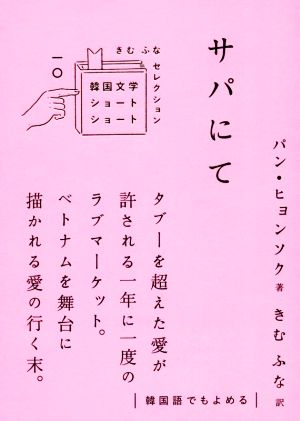 サパにて
パン・ヒョンソク 著
きむ ふな 訳
きむ ふな セレクション
韓国文学
ショート
ショート
一〇
タブーを超えた愛が
許される一年に一度の
ラブマーケット。
ベトナムを舞台に
描かれる愛の行く末。
韓国語でもよめる